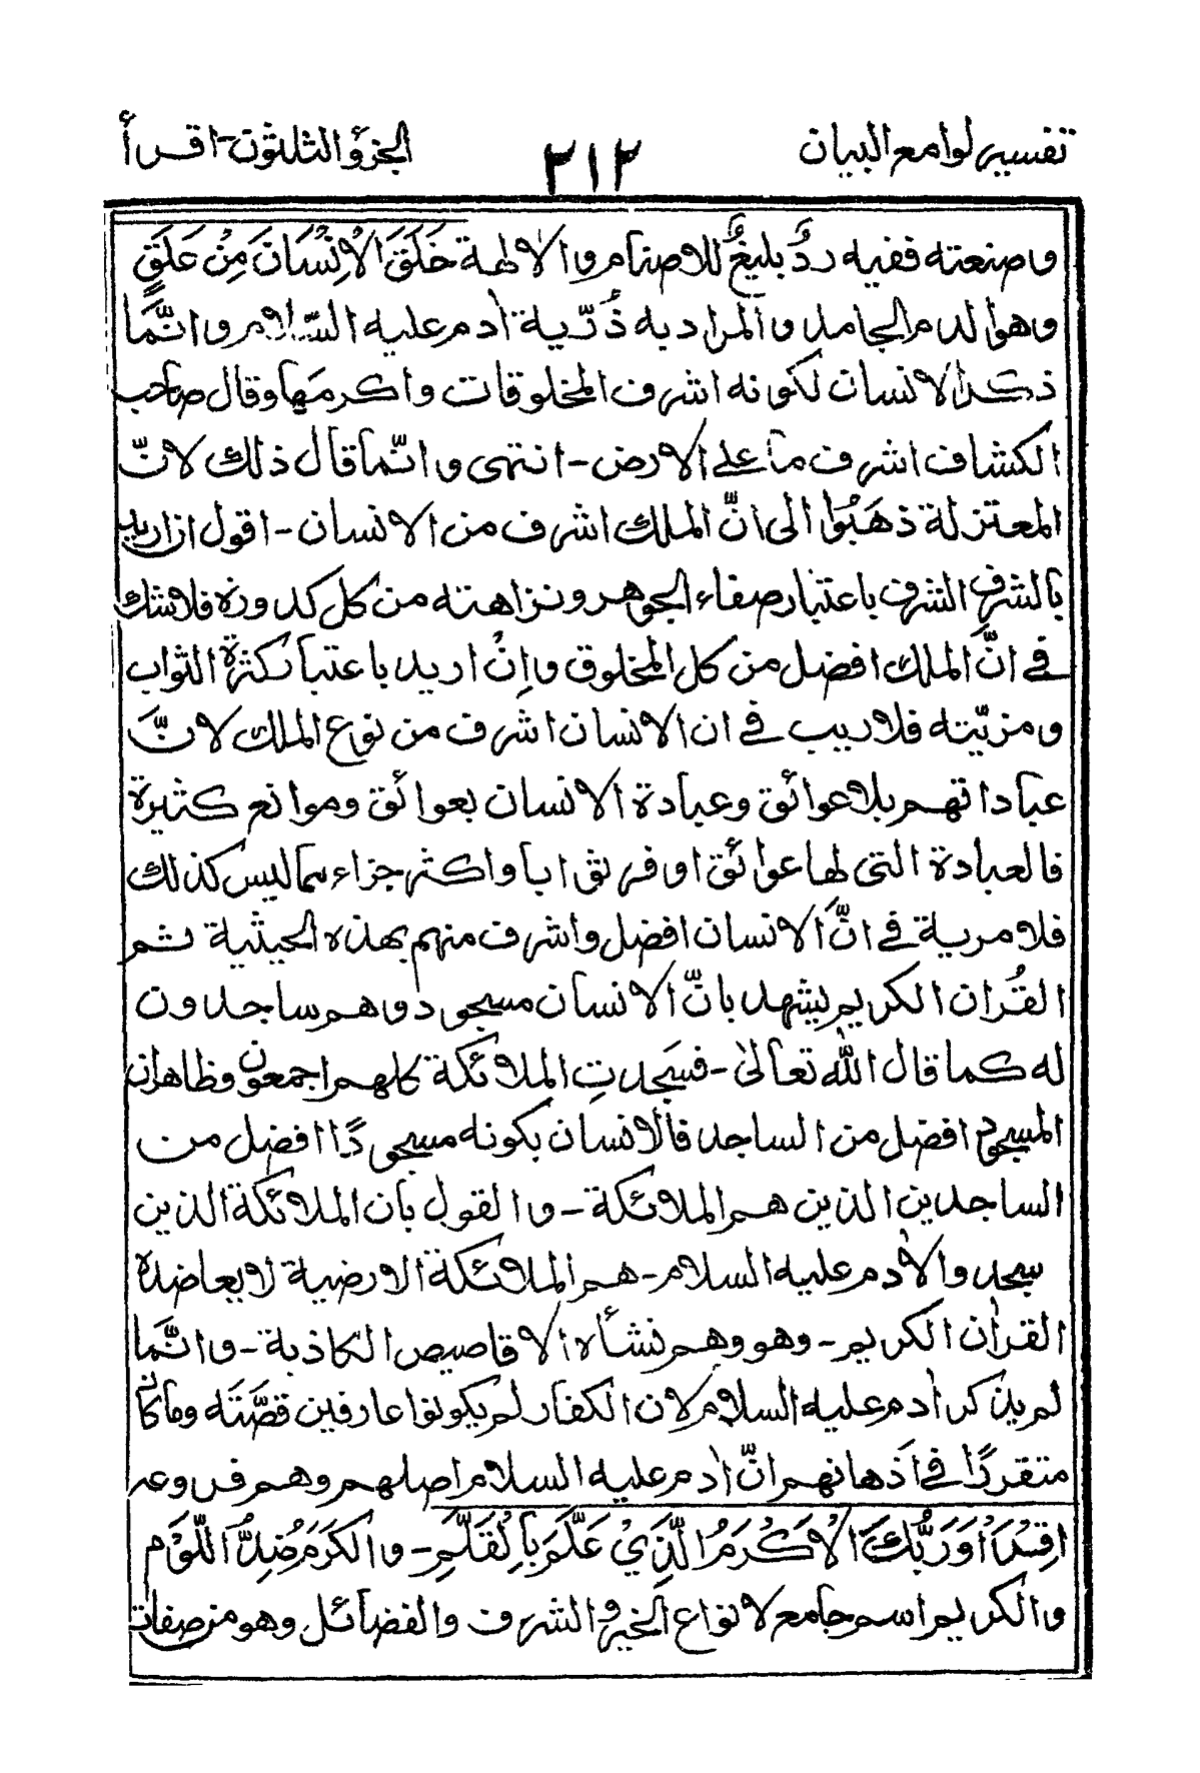 تفسير لوامع البيان ٢١٢ الجزؤ الثلثون - اقرأ
وصنعته ففيه ردٌّ بليغٌ للاصنام والالهة خَلَقَ الْاِنْسَانَ مِنْ عَلَقٍ
وهو الدم الجامد والمراد به ذُرّية اٰدم عليه السّلام وانَّما
ذكر الانسان لكونه اشرف المخلوقات واكرمها وقال صاحب
الكشاف اشرف ما على الارض - انتهى وانّما قال ذلك لانّ
المعتزلة ذهَبُوا الى انّ الملك اشرف من الانسان - اقول ان اريد
بالشرفِ الشرف باعتبار صفاء الجوهر ونزاهته من كل كدورة فلاشك
فى انَّ الملك افضل من كل المخلوق واِنْ اريد باعتبار كثرة الثواب
ومزيّته فلاريب فى ان الانسان اشرف من نوع الملك لانَّ
عباداتهم بلا عوائق وعبادة الانسان بعوائق وموانع كثيرة
فالعبادة التى لها عوائق اوفر ثوابا واكثر جزاء مما ليس كذلك
فلا مرية فى انَّ الانسان افضل واشرف منهم بهذه الحيثية ثم
القُراٰن الكريم يشهد بانّ الانسان مسجود وهم ساجدون
له كما قال الله تعالىٰ - فسَجدتِ الملائكة كلهم اجمعون وظاهران
المسجود افضل من الساجد فالانسان بكونه مسجودًا افضل من
الساجدين الذين هم الملائكة - والقول بان الملائكة الذين
سجدوا لاٰدم عليه السلام - هم الملائكة الارضية لا يعاضده
القراٰن الكريم - وهو وهم نشأ من الاقاصيص الكاذبة - وانَّما
لم يذكر اٰدم عليه السلام لان الكفار لم يكونوا عارفين قصَّتَه وما كان
متقررًا فى اَذهانهم انّ اٰدم عليه السلام اصلهم وهم فروعه
اِقْرَاْ وَرَبُّكَ الْاَكْرَمُ الَّذِيْ عَلَّمَ بِالْقَلَمِ - والكَرَمُ ضِدُّ اللّوْم
والكريم اسم جامع لانواع الخير والشرف والفضائل وهو من صفات